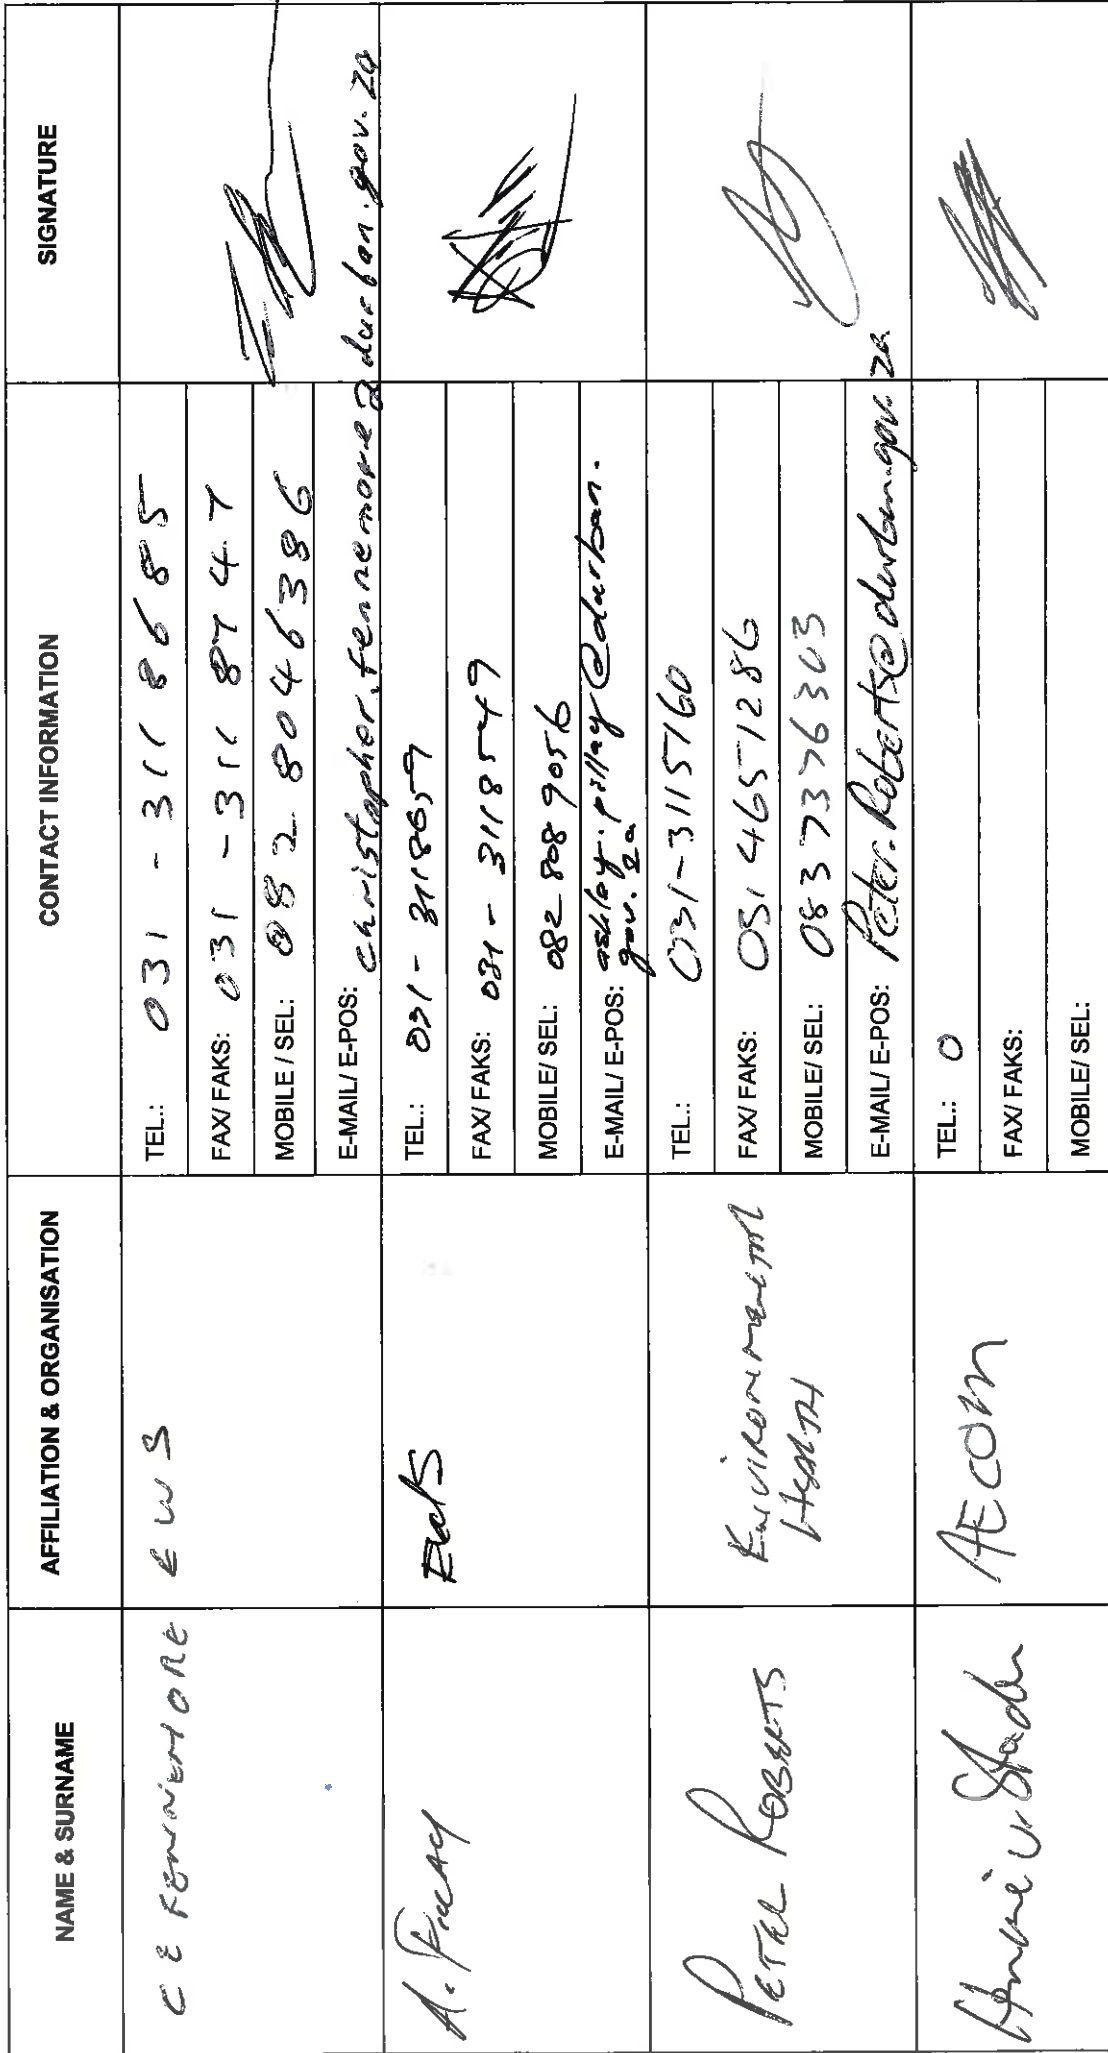 NAME & SURNAME
AFFILIATION & ORGANISATION
CONTACT INFORMATION
SIGNATURE
C E FENNEMORE
EWS
TEL.: 031 - 311 8685
FAX/ FAKS: 031 - 311 8747
MOBILE / SEL: 082 8046386
E-MAIL/ E-POS: christopher.fennemore@durban.gov.za
A. Pillay
EWS
TEL.: 031 - 3118659
FAX/ FAKS: 031 - 3118549
MOBILE/ SEL: 082 808 9056
E-MAIL/ E-POS: ashley.pillay@durban.
gov.za
PETER ROBERTS
ENVIRONMENTAL
HEALTH
TEL.: 031-3115160
FAX/ FAKS: 031 46571286
MOBILE/ SEL: 0837376303
E-MAIL/ E-POS: Peter.Roberts@durban.gov.za
AECOM
TEL.: 0
FAX/ FAKS:
MOBILE/ SEL: